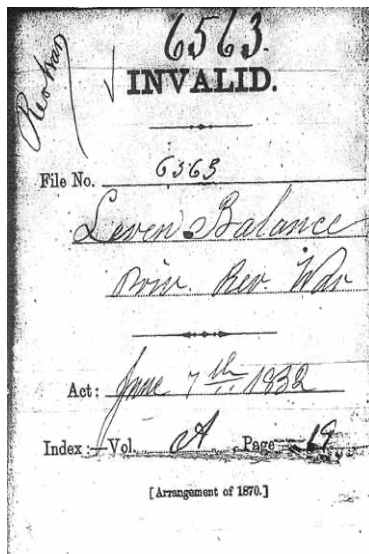 6563.
Rev War
INVALID.
File No. 6563
Leven Balance
Priv. Rev. War
Act: June 7th 1832
Index:—Vol. A Page 19
[Arrangement of 1870.]